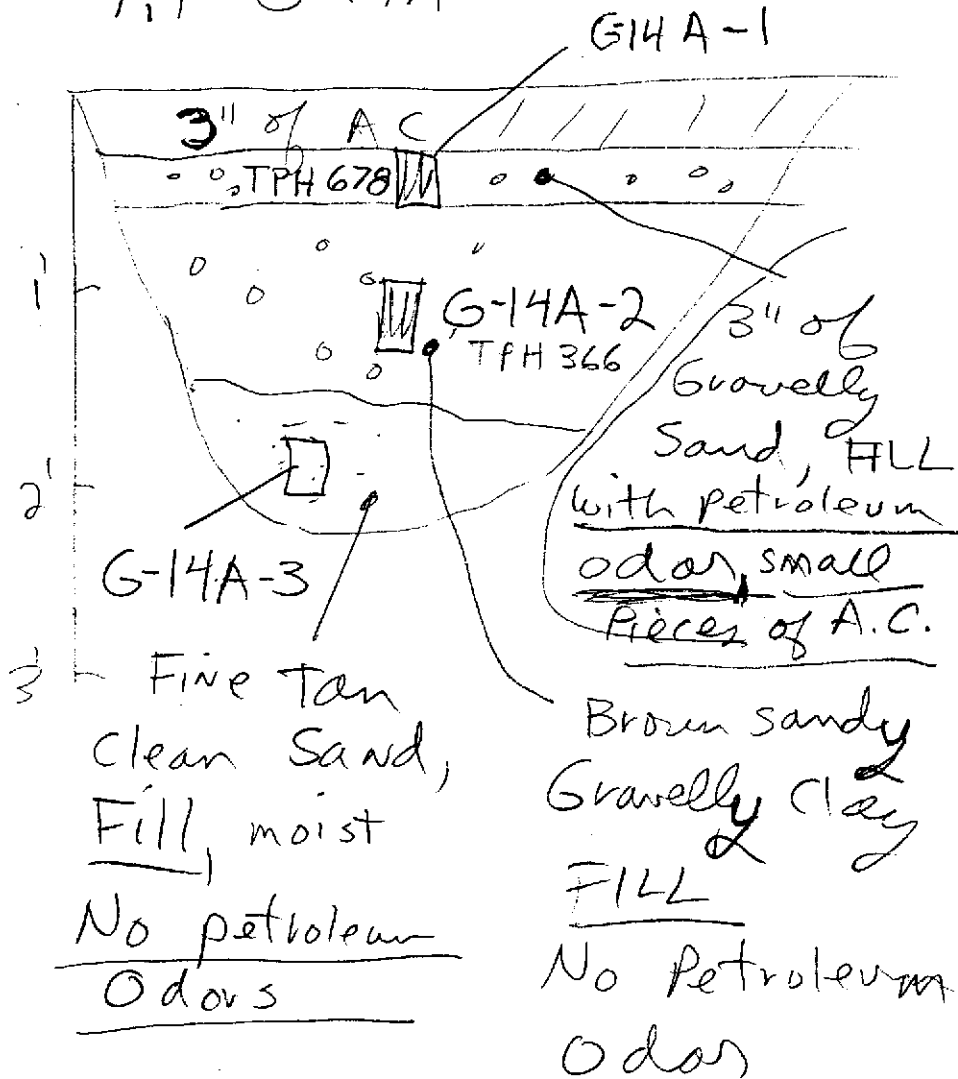 G14A-1
3" of AC
TPH 678
1'
G-14A-2
TPH 366
3" of
Gravelly
Sand, FILL
with petroleum
odor, small
Pieces of A.C.
2'
G-14A-3
3'
Fine Tan
Clean Sand,
Fill, moist
No petroleum
Odors
Brown sandy
Gravelly Clay
FILL
No Petroleum
Odor